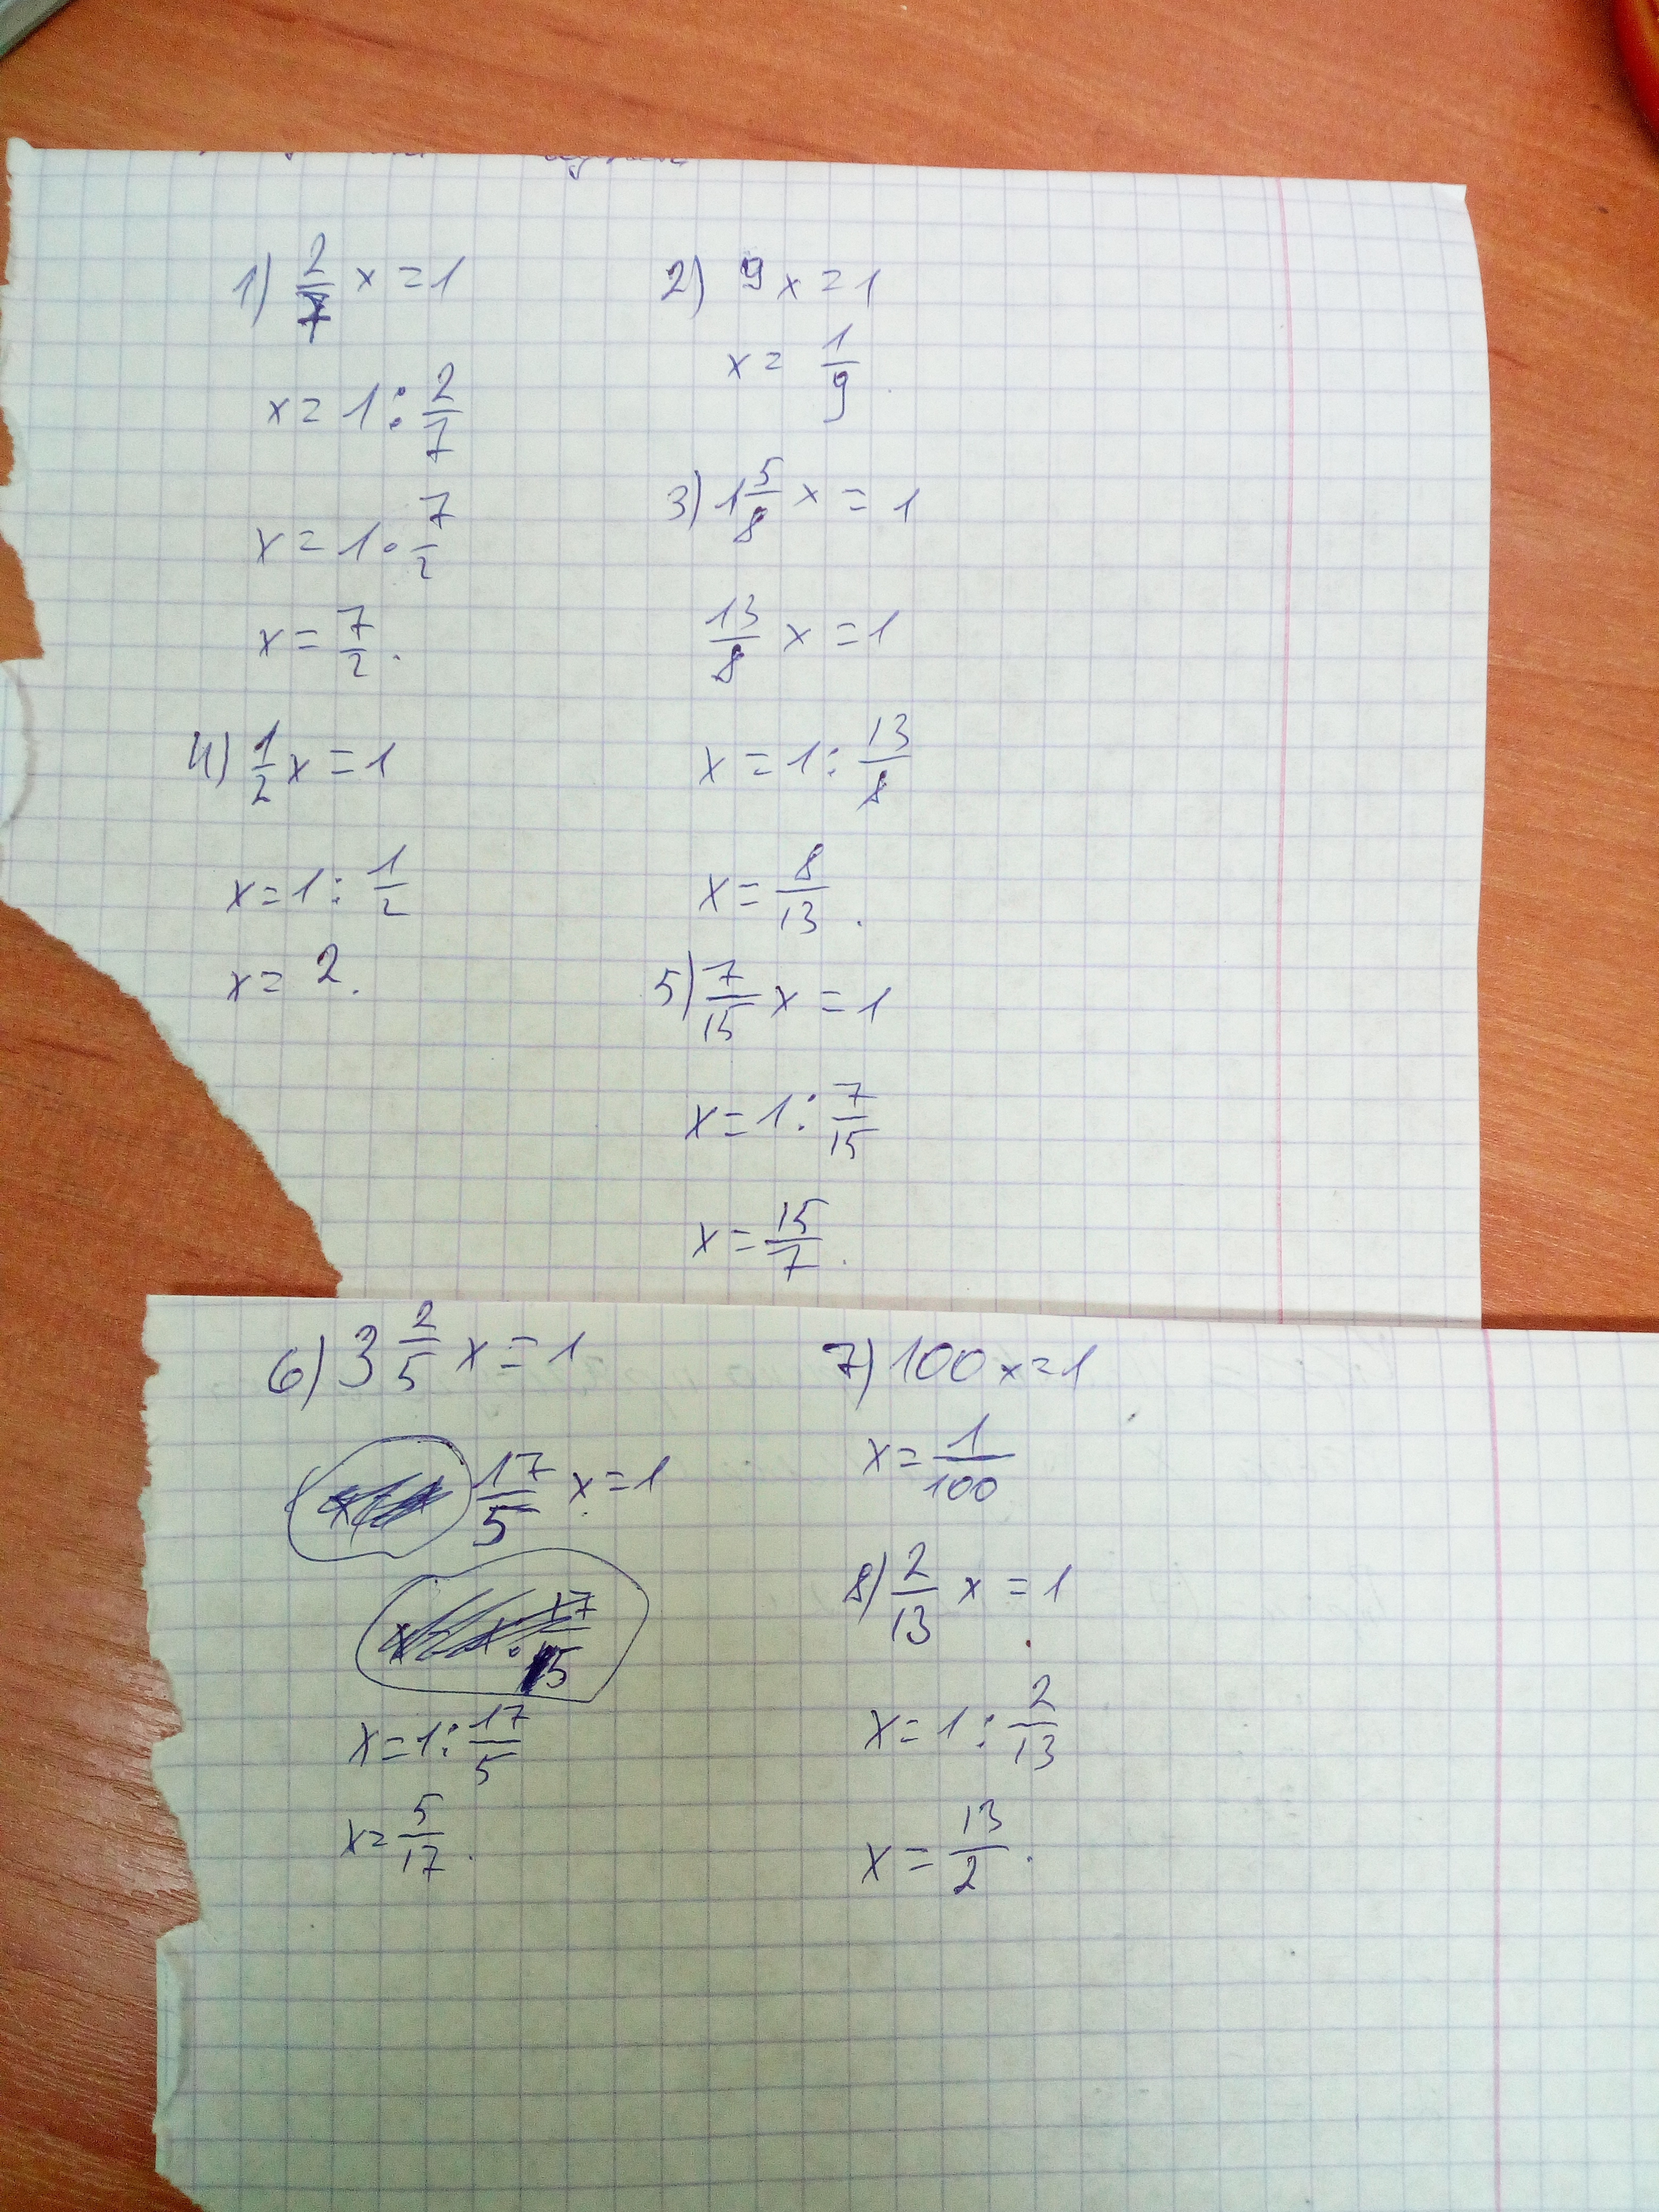 1) 2/7 x = 1
x = 1 : 2/7
x = 1 · 7/2
x = 7/2.
4) 1/2 x = 1
x = 1 : 1/2
x = 2.
2) 9x = 1
x = 1/9.
3) 1 5/8 x = 1
13/8 x = 1
x = 1 : 13/8
x = 8/13.
5) 7/15 x = 1
x = 1 : 7/15
x = 15/7.
6) 3 2/5 x = 1
17/5 x = 1
x = 1 : 17/5
x = 5/17.
7) 100x = 1
x = 1/100
8) 2/13 x = 1
x = 1 : 2/13
x = 13/2.